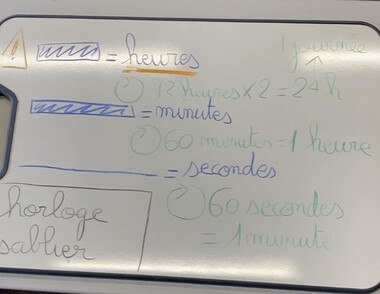 1 journée
= heures
12 heures x 2 = 24 h
= minutes
60 minutes = 1 heure
= secondes
60 secondes
= 1 minute
horloge
sablier